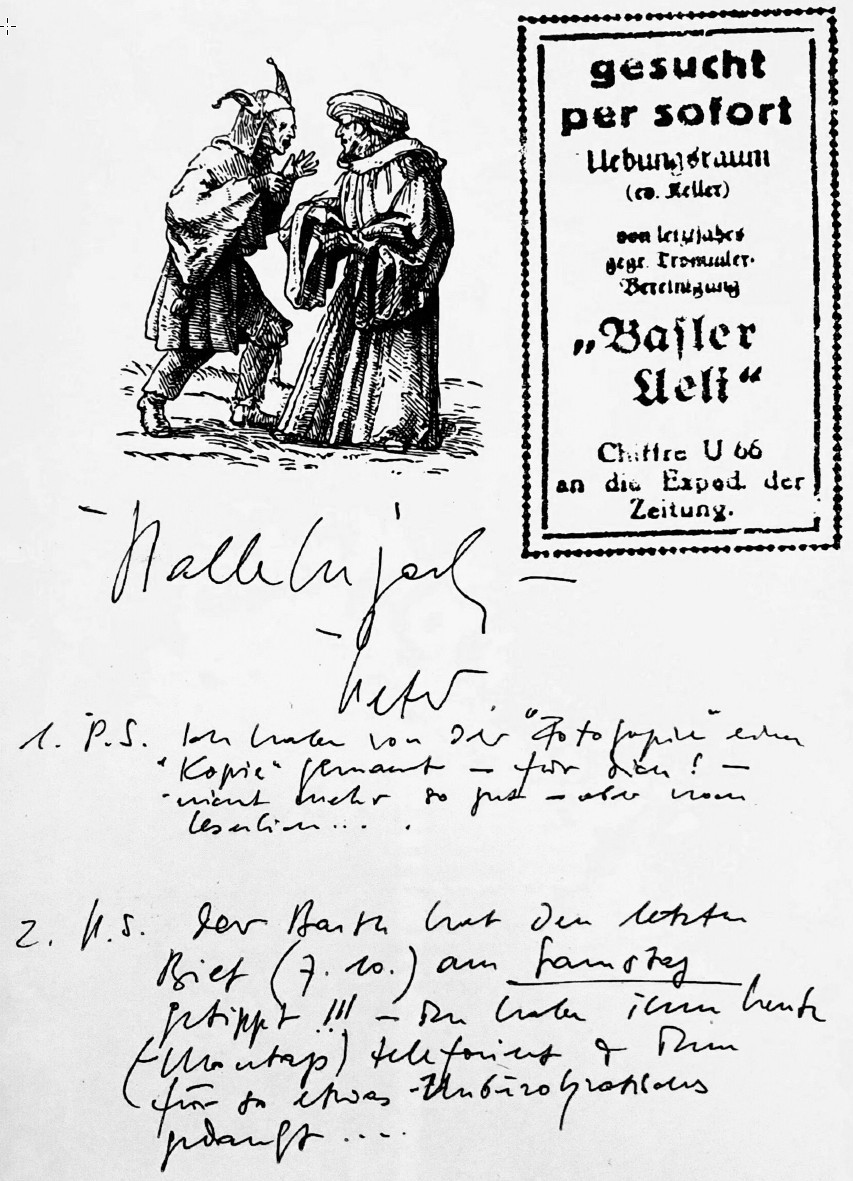 gesucht
per sofort
Uebungsraum
(ev. Keller)
von letztjahrs
gegr. Trommler-
Vereinigung
„Basler
Ueli“
Chiffre U 66
an die Exped. der
Zeitung.
– Hallelujah –
– Peter.
1. P.S. Ich habe von der "Fotokopie" eine
"Kopie" gemacht – für dich! –
– nicht mehr so gut – aber noch
leserlich... .
2. P.S. Der Barth hat den letzten
Brief (7.10.) am Samstag
getippt !!! – habe ihm heute
(– Montag) telefoniert & ihm
für so etwas Unbürokratisches
gedankt ....